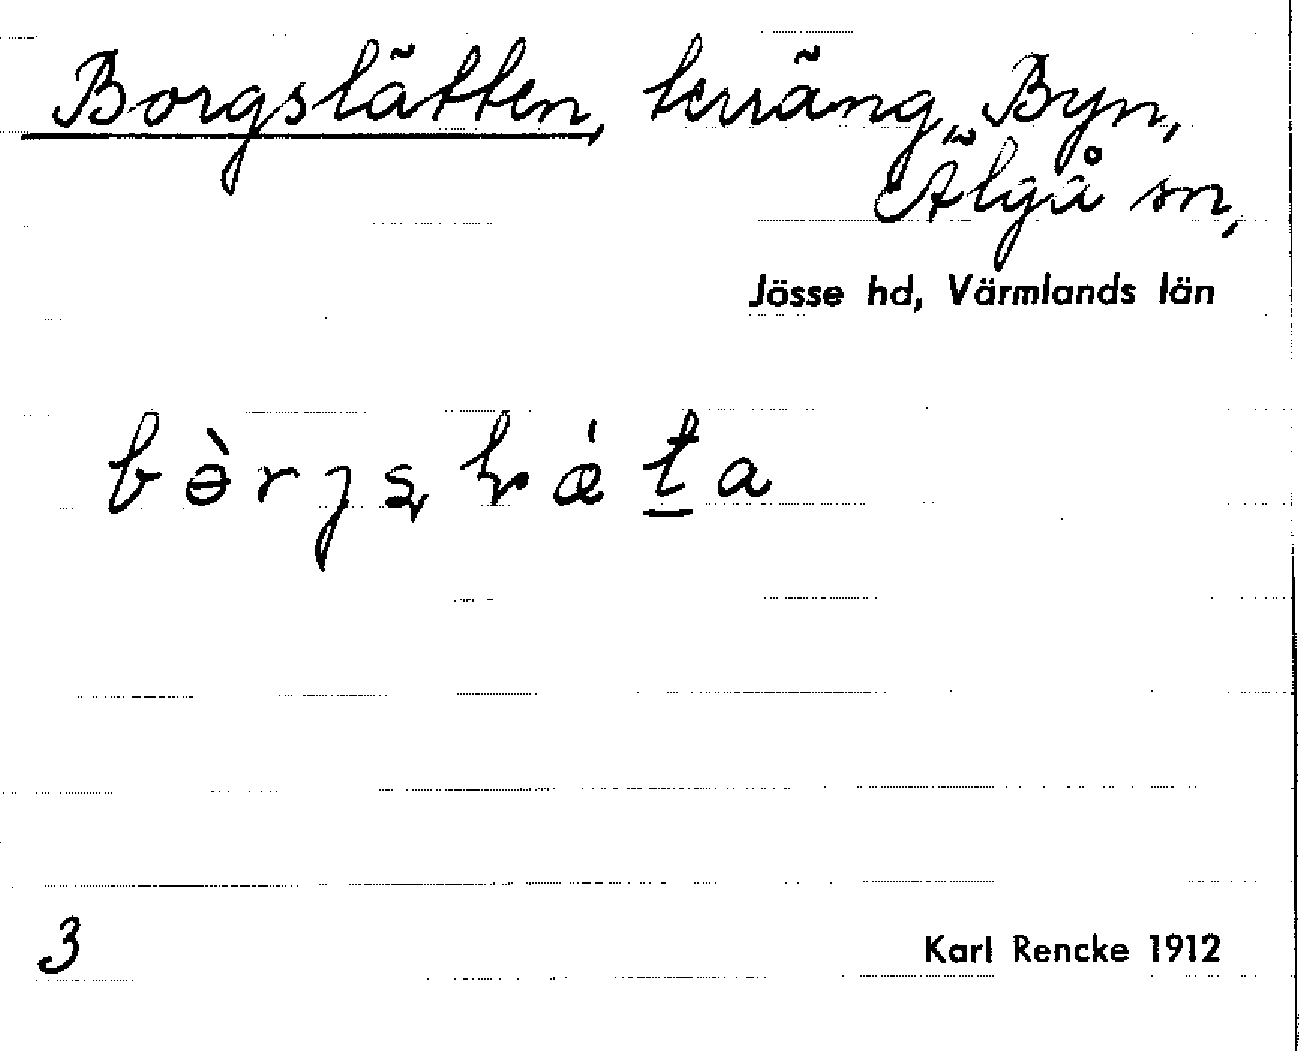 Borgslätten, terräng, Byn,
Älgå sn,
Jösse hd, Värmlands län
3
Karl Rencke 1912